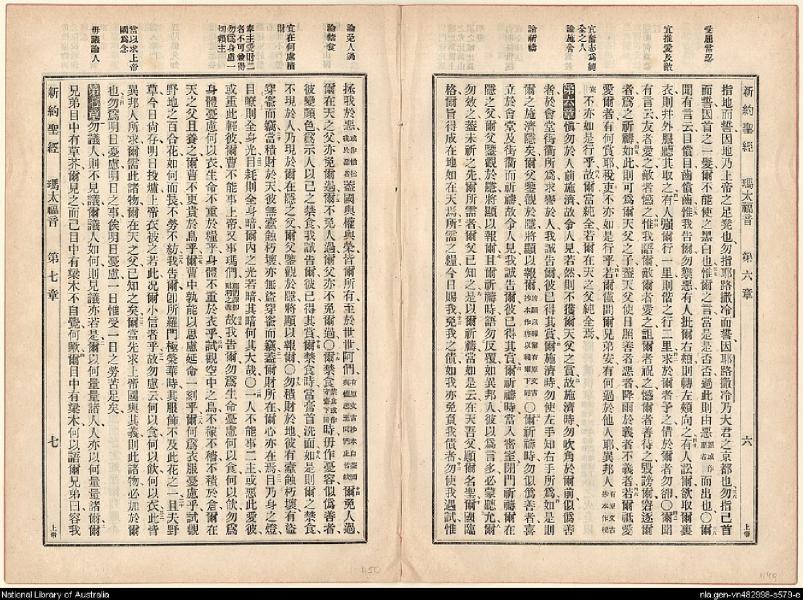 受屈當忍
宜推愛及敵
宜奮志爲純全之人
論施舍
論祈禱
新約聖經 瑪太福音 第六章 六 上帝
指地而誓因地乃上帝之足凳也勿指耶路撒冷而誓因耶路撒冷乃大君之京都也勿指己首
而誓因首之一髮爾不能使之黑白也惟爾之言當是是否否過此則由惡而出也〇爾
聞有言云目償目齒償齒惟我告爾勿禦惡有人批爾右頰則轉左頰向之有人訟爾欲取爾裏
衣則幷外服聽其取之有人強爾行一里則偕之行二里求於爾者予之借於爾者勿卻〇爾聞
有言云友者愛之敵者憾之惟我語爾敵爾者愛之詛爾者祝之憾爾者善待之毀謗爾窘逐爾
者爲之祈禱如此則可爲爾天父之子蓋天父使日照善者惡者降雨於義者不義者若爾祗愛
愛爾者有何賞耶稅吏不亦如是行乎若爾僅問爾兄弟安有何過於他人耶異邦人
不亦如是行乎故爾當純全若爾在天之父純全焉
第六章 愼勿於人前施濟故令人見若然則不獲爾天父之賞故施濟時勿吹角於爾前似僞善
者於會堂街衢所爲求譽於人我誠告爾彼已得其賞爾施濟時勿使左手知右手所爲如是則
爾之施濟隱矣爾父鑒觀於隱將顯以報爾〇爾祈禱時勿似僞善者喜
立於會堂及街衢而祈禱故令人見我誠告爾彼已得其賞爾祈禱時當入密室閉門祈禱在
隱之父爾父鑒觀於隱將顯以報爾且爾祈禱時語勿反覆如異邦人彼以爲言多必蒙聽允爾
勿效之蓋未祈之先爾所需者爾父已知之是以爾祈禱當如是云在天吾父願爾名聖爾國臨
格爾旨得成在地如在天焉所需之糧今日賜我免我之債如我亦免負我債者勿使我遇試惟
論免人過
論禁食
宜在何處積財
奉主愛財二者不可兼得
勿爲身慮一切賴主
當以求上帝國爲念
毋議論人
拯我於惡蓋國與權與榮皆爾所有至於世世阿們爾免人過
爾在天之父亦免爾過爾不免人過爾父亦不免爾過〇爾禁食時毋作憂容似僞善者
彼變顏色爲示人以己之禁食我誠告爾彼已得其賞爾禁食時當膏首洗面如是則爾之禁食
不現於人乃現於爾在隱之父爾父鑒觀於隱將顯以報爾〇勿積財於地彼有蠹蝕朽壞有盜
穿窬而竊當積財於天彼無蠹蝕朽壞亦無盜穿窬而竊蓋爾財所在爾心亦在焉目乃身之燈
目瞭則全身光目眊則全身暗爾內之光若暗其暗何其大哉〇一人不能事二主或惡此愛彼
或重此輕彼爾曹不能事上帝又事瑪們故我告爾勿爲生命憂慮何以食何以飲勿爲
身體憂慮何以衣生命不重於糧乎身體不重於衣乎試觀空中之鳥不稼不穡不積於倉爾在
天之父且養之爾曹不更貴於鳥乎爾曹中孰能以思慮延命一刻乎爾何爲衣服憂慮乎試觀
野地之百合花如何而長不勞不紡我告爾卽所羅門極榮華時其服飾不及此花之一且夫野
草今日尚存明日投爐上帝衣被之若此況爾小信者乎故勿慮云何以食何以飲何以衣此皆
異邦人所求爾需此諸物爾在天之父已知之矣爾當先求上帝國與其義則此諸物必加於爾
也勿爲明日憂慮明日之事俟明日憂慮一日惟受一日之勞苦足矣
第七章 勿議人則不見議爾議人如何則見議亦若是爾以何量量諸人人亦以何量量諸爾爾
兄弟目中有草芥爾見之而己目中有梁木不自覺何歟爾目中有梁木何以語爾兄弟曰容我
新約聖經 瑪太福音 第七章 七 上帝
National Library of Australia
nla.gen-vn482998-s579-e